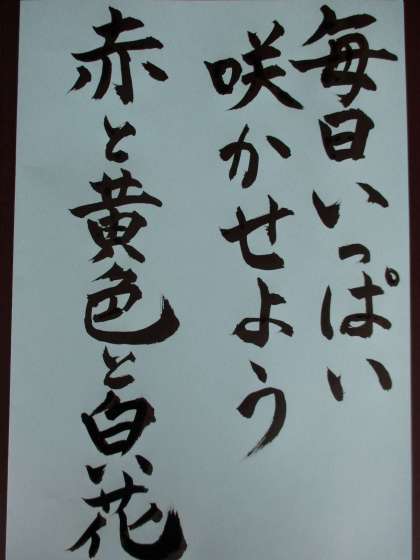 毎日いっぱい
咲かせよう
赤と黄色と白い花